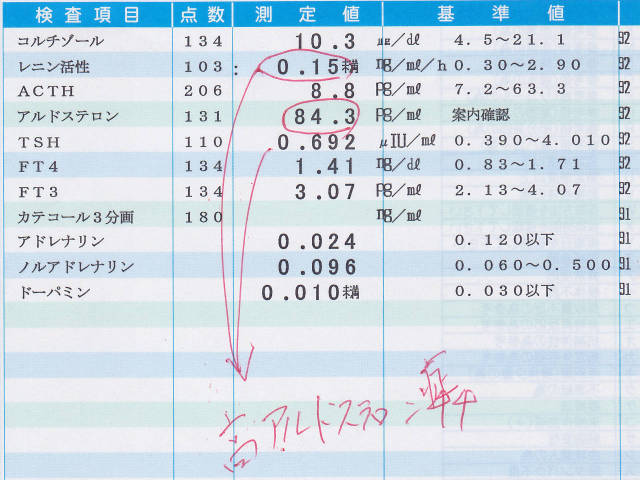 検査項目 点数 測定値 基準値
コルチゾール 134 10.3 μg/dl 4.5～21.1 92
レニン活性 103 : 0.15未満 ng/ml/h 0.30～2.90 92
ACTH 206 8.8 pg/ml 7.2～63.3 92
アルドステロン 131 84.3 pg/ml 案内確認 92
TSH 110 0.692 μIU/ml 0.390～4.010 92
FT4 134 1.41 ng/dl 0.83～1.71 92
FT3 134 3.07 pg/ml 2.13～4.07 92
カテコール3分画 180 ng/ml 91
アドレナリン 0.024 0.120以下 91
ノルアドレナリン 0.096 0.060～0.500 91
ドーパミン 0.010未満 0.030以下 91
高アルドステロ